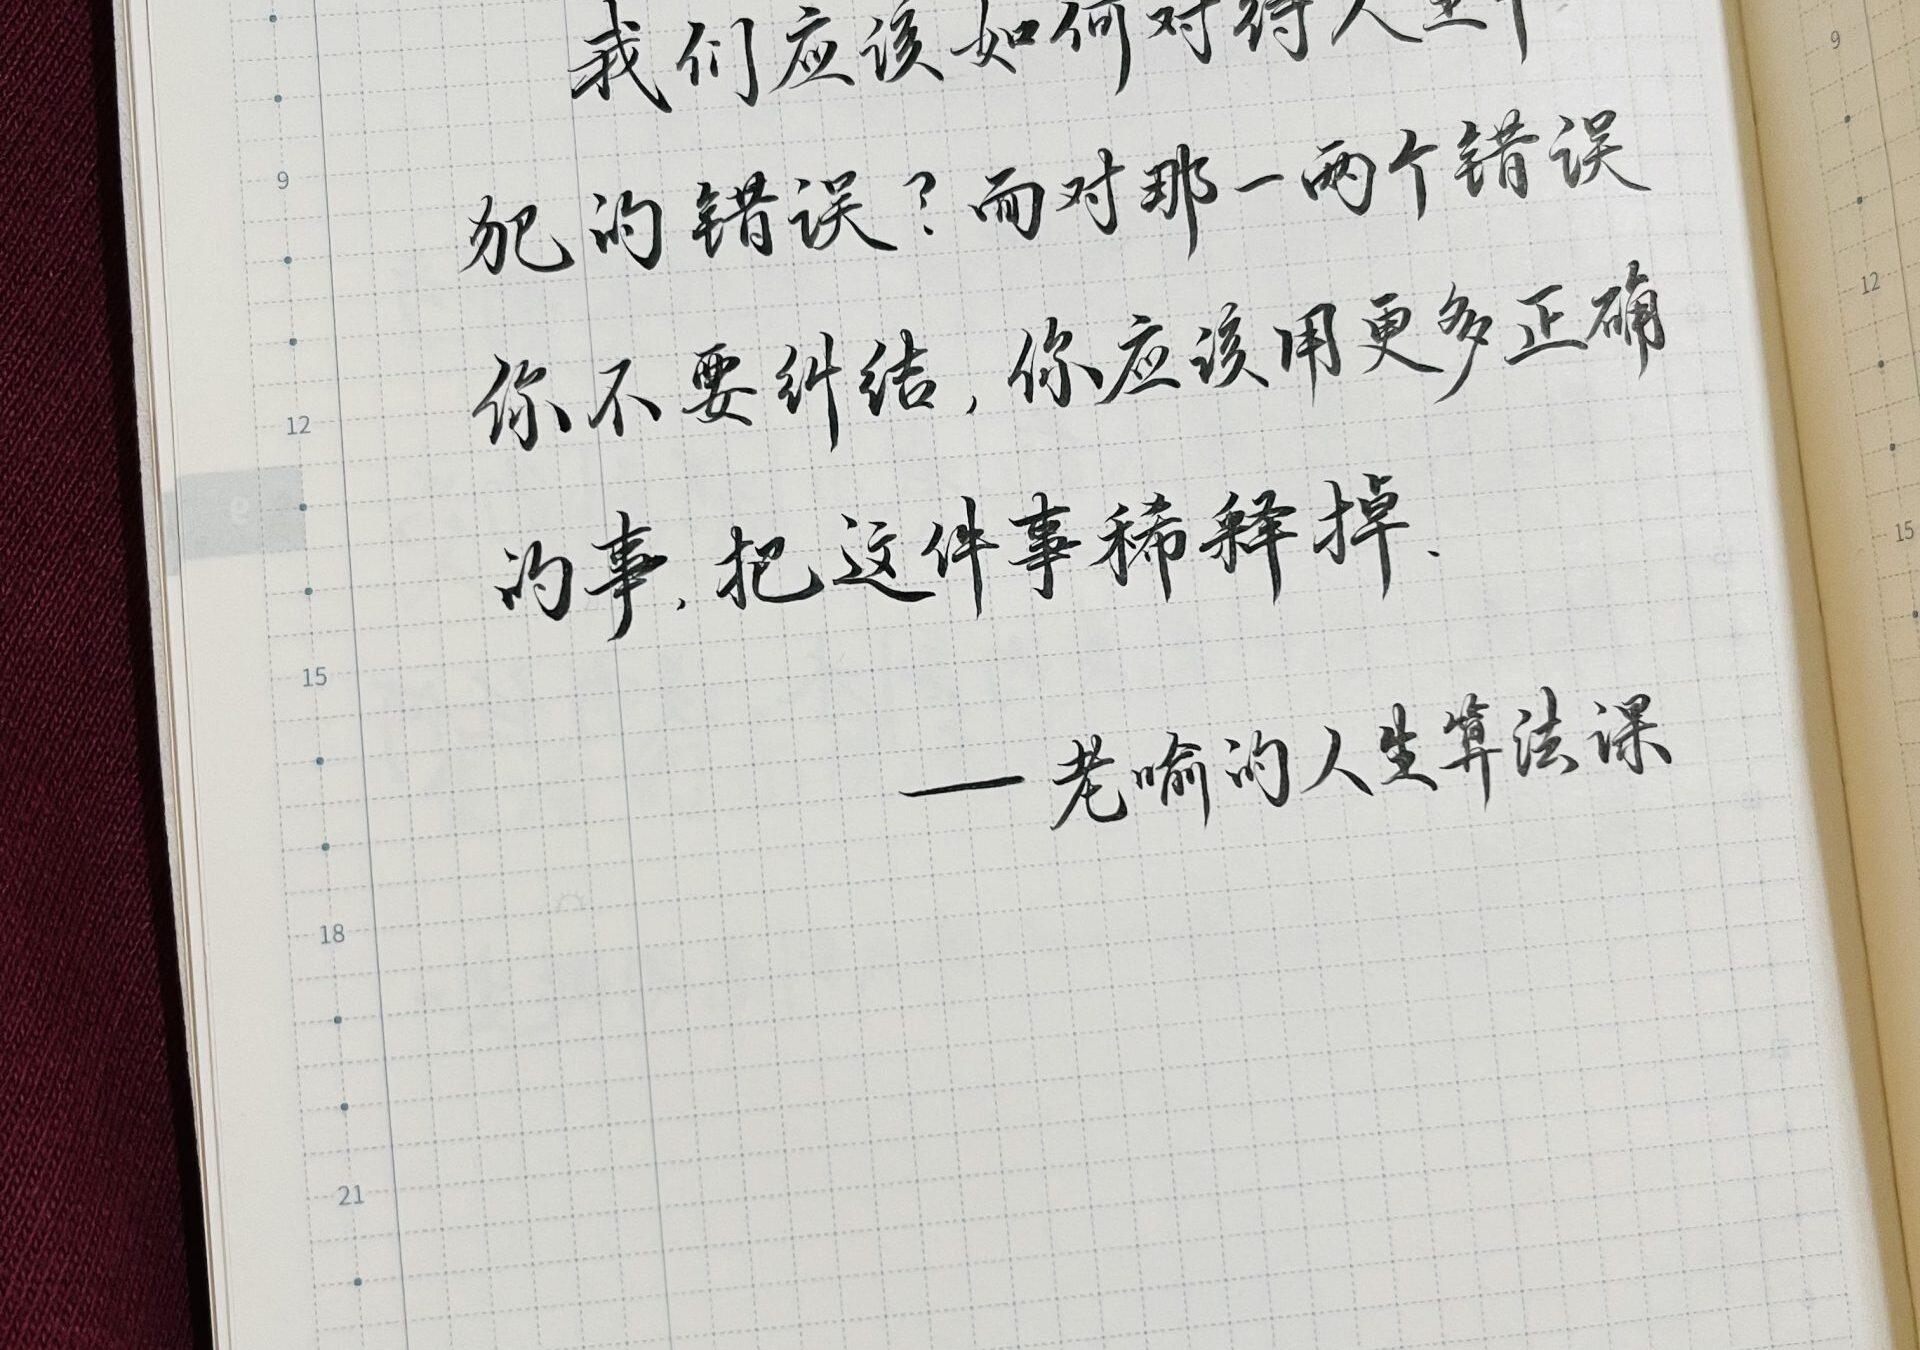 我们应该如何对待人生中
犯的错误？而对那一两个错误
你不要纠结，你应该用更多正确
的事，把这件事稀释掉．
— 老喻的人生算法课
9
12
15
18
21
9
12
15